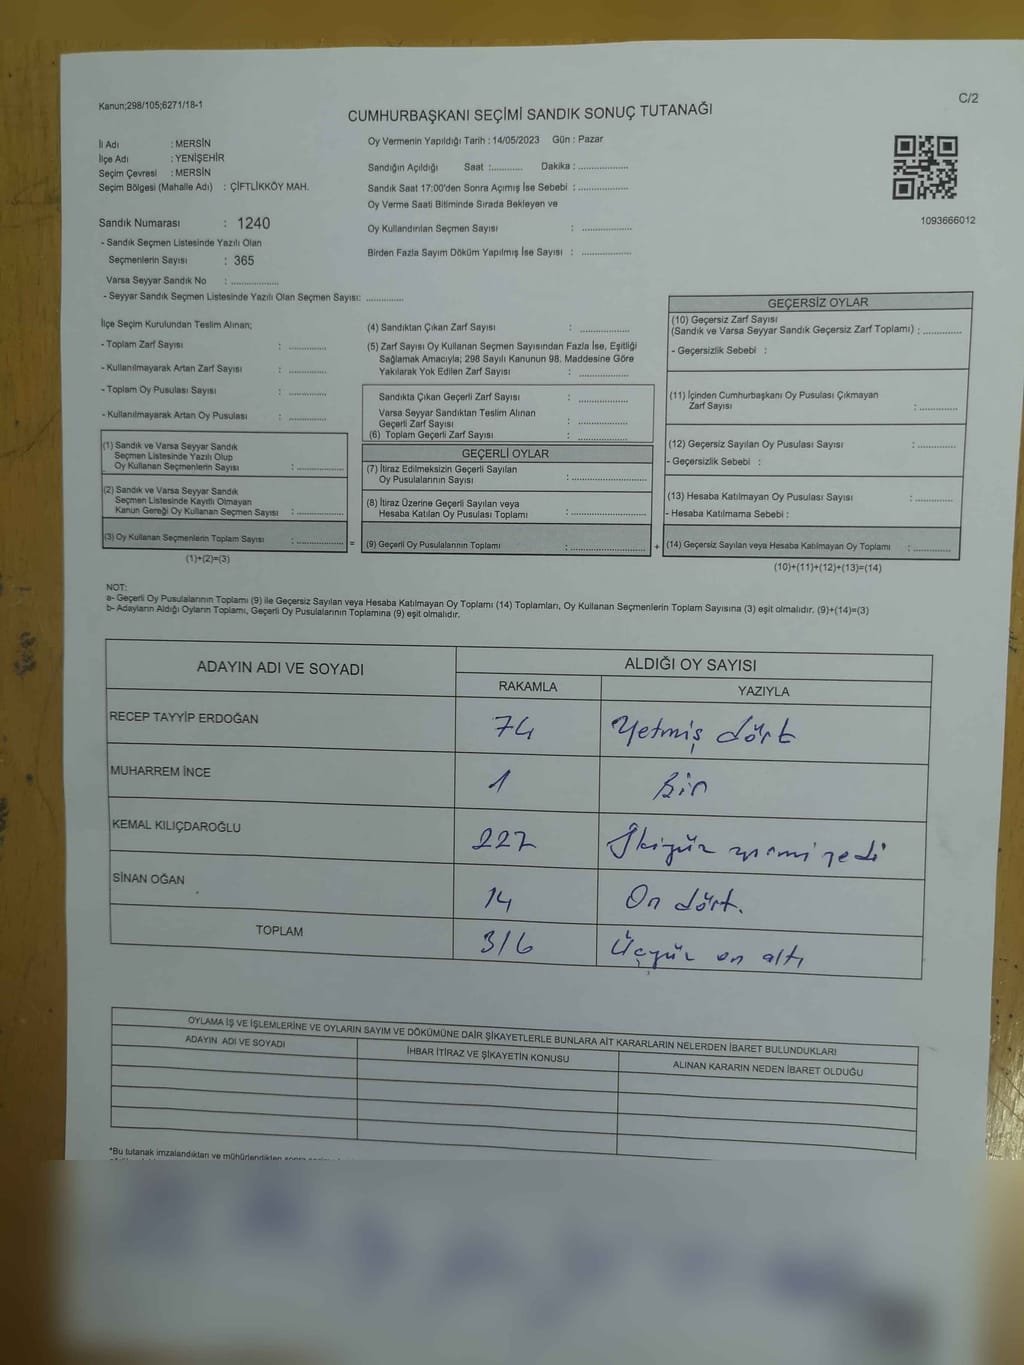 Kanun;298/105;6271/18-1
C/2
CUMHURBAŞKANI SEÇİMİ SANDIK SONUÇ TUTANAĞI
İl Adı : MERSİN
İlçe Adı : YENİŞEHİR
Seçim Çevresi : MERSİN
Seçim Bölgesi (Mahalle Adı) : ÇİFTLİKKÖY MAH.
Sandık Numarası : 1240
- Sandık Seçmen Listesinde Yazılı Olan
Seçmenlerin Sayısı : 365
Varsa Seyyar Sandık No : ................
- Seyyar Sandık Seçmen Listesinde Yazılı Olan Seçmen Sayısı: .............
Oy Vermenin Yapıldığı Tarih : 14/05/2023 Gün : Pazar
Sandığın Açıldığı Saat :........... Dakika : ................
Sandık Saat 17:00'den Sonra Açımış İse Sebebi : ................
Oy Verme Saati Bitiminde Sırada Bekleyen ve
Oy Kullandırılan Seçmen Sayısı : ................
Birden Fazla Sayım Döküm Yapılmış İse Sayısı : ................
1093666012
İlçe Seçim Kurulundan Teslim Alınan;
- Toplam Zarf Sayısı : .............
- Kullanılmayarak Artan Zarf Sayısı : .............
- Toplam Oy Pusulası Sayısı : .............
- Kullanılmayarak Artan Oy Pusulası : .............
(1) Sandık ve Varsa Seyyar Sandık
Seçmen Listesinde Yazılı Olup
Oy Kullanan Seçmenlerin Sayısı : ................
(2) Sandık ve Varsa Seyyar Sandık
Seçmen Listesinde Kayıtlı Olmayan
Kanun Gereği Oy Kullanan Seçmen Sayısı : ................
(3) Oy Kullanan Seçmenlerin Toplam Sayısı : ................ =
(1)+(2)=(3)
(4) Sandıktan Çıkan Zarf Sayısı : ................
(5) Zarf Sayısı Oy Kullanan Seçmen Sayısından Fazla İse, Eşitliği
Sağlamak Amacıyla; 298 Sayılı Kanunun 98. Maddesine Göre
Yakılarak Yok Edilen Zarf Sayısı : ................
Sandıkta Çıkan Geçerli Zarf Sayısı : ................
Varsa Seyyar Sandıktan Teslim Alınan
Geçerli Zarf Sayısı : ................
(6) Toplam Geçerli Zarf Sayısı : ................
GEÇERLİ OYLAR
(7) İtiraz Edilmeksizin Geçerli Sayılan
Oy Pusulalarının Sayısı : ........................
(8) İtiraz Üzerine Geçerli Sayılan veya
Hesaba Katılan Oy Pusulası Toplamı : ........................
(9) Geçerli Oy Pusulalarının Toplamı : ........................ +
GEÇERSİZ OYLAR
(10) Geçersiz Zarf Sayısı
(Sandık ve Varsa Seyyar Sandık Geçersiz Zarf Toplamı) : .............
- Geçersizlik Sebebi :
(11) İçinden Cumhurbaşkanı Oy Pusulası Çıkmayan
Zarf Sayısı : .............
(12) Geçersiz Sayılan Oy Pusulası Sayısı : .............
- Geçersizlik Sebebi :
(13) Hesaba Katılmayan Oy Pusulası Sayısı : .............
- Hesaba Katılmama Sebebi :
(14) Geçersiz Sayılan veya Hesaba Katılmayan Oy Toplamı : .............
(10)+(11)+(12)+(13)=(14)
NOT:
a- Geçerli Oy Pusulalarının Toplamı (9) ile Geçersiz Sayılan veya Hesaba Katılmayan Oy Toplamı (14) Toplamları, Oy Kullanan Seçmenlerin Toplam Sayısına (3) eşit olmalıdır. (9)+(14)=(3)
b- Adayların Aldığı Oyların Toplamı, Geçerli Oy Pusulalarının Toplamına (9) eşit olmalıdır.
ADAYIN ADI VE SOYADI ALDIĞI OY SAYISI
RAKAMLA YAZIYLA
RECEP TAYYİP ERDOĞAN 74 Yetmiş dört
MUHARREM İNCE 1 Bir
KEMAL KILIÇDAROĞLU 227 İkiyüz yirmi yedi
SİNAN OĞAN 14 On dört.
TOPLAM 316 Üçyüz on altı
OYLAMA İŞ VE İŞLEMLERİNE VE OYLARIN SAYIM VE DÖKÜMÜNE DAİR ŞİKAYETLERLE BUNLARA AİT KARARLARIN NELERDEN İBARET BULUNDUKLARI
ADAYIN ADI VE SOYADI İHBAR İTİRAZ VE ŞİKAYETİN KONUSU ALINAN KARARIN NEDEN İBARET OLDUĞU
*Bu tutanak imzalandıktan ve mühürlendikten sonra